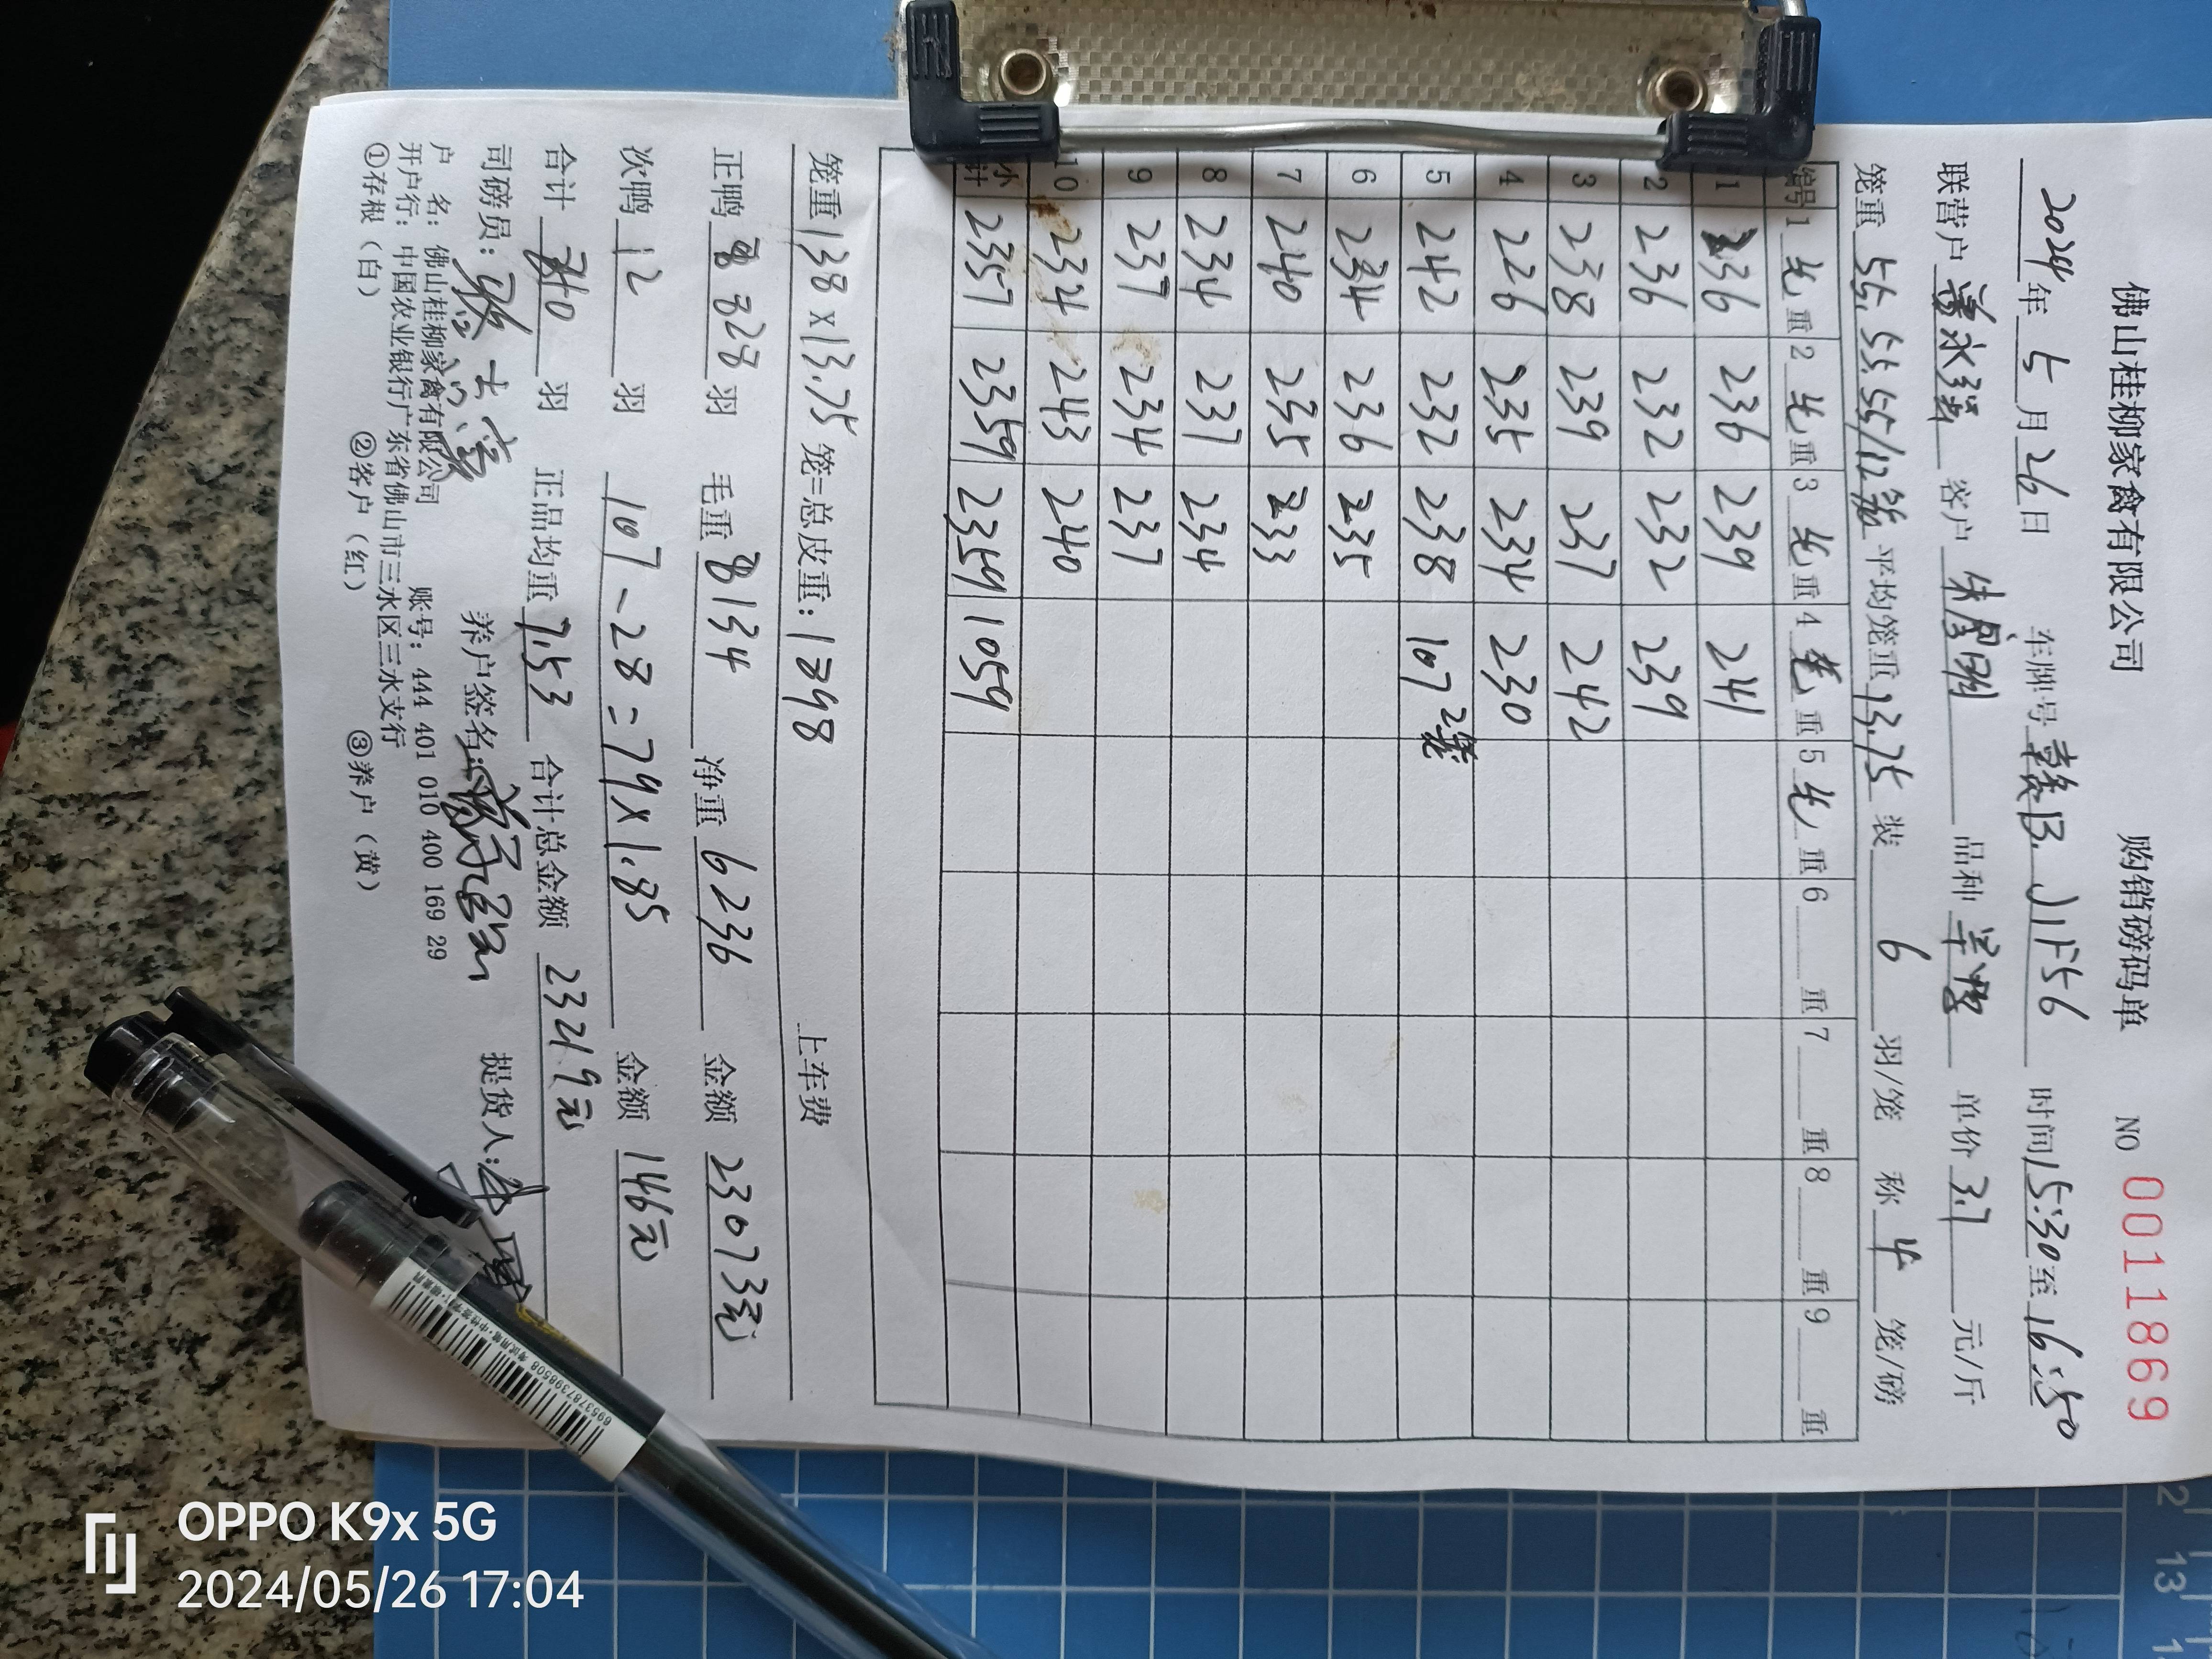 佛山桂柳家禽有限公司 购销磅码单 NO 0011869
2024年5月26日 车牌号 赣B.J1F56 时间15:30至16:50
联营户 客户 朱 明 品种 单价 3.7 元/斤
笼重 55.55.55/12笼 平均笼重 13.75 装 6 羽/笼 称 4 笼/磅
编号 1 毛 重 2 毛 重 3 毛 重 4 毛 重 5 毛 重 6 重 7 重 8 重 9 重
1 236 236 239 241
2 236 232 232 239
3 238 239 237 242
4 226 235 234 230
5 242 232 238 107 2笼
6 234 236 235
7 240 235 233
8 234 237 234
9 237 234 237
10 234 243 240
小计 2357 2359 2359 1059
笼重 138 x 13.75 笼=总皮重: 1898 上车费
正鸭 828 羽 毛重 8134 净重 6236 金额 23073元
次鸭 12 羽 107-28=79×1.85 金额 146元
合计 840 羽 正品均重 7.53 合计总金额 23219元
司磅员: 养户签名: 提货人:
户 名: 佛山桂柳家禽有限公司 账号: 444 401 010 400 169 29
开户行: 中国农业银行广东省佛山市三水区三水支行
①存根（白） ②客户（红） ③养户（黄）
6953787398508
12
13
OPPO K9x 5G
2024/05/26 17:04